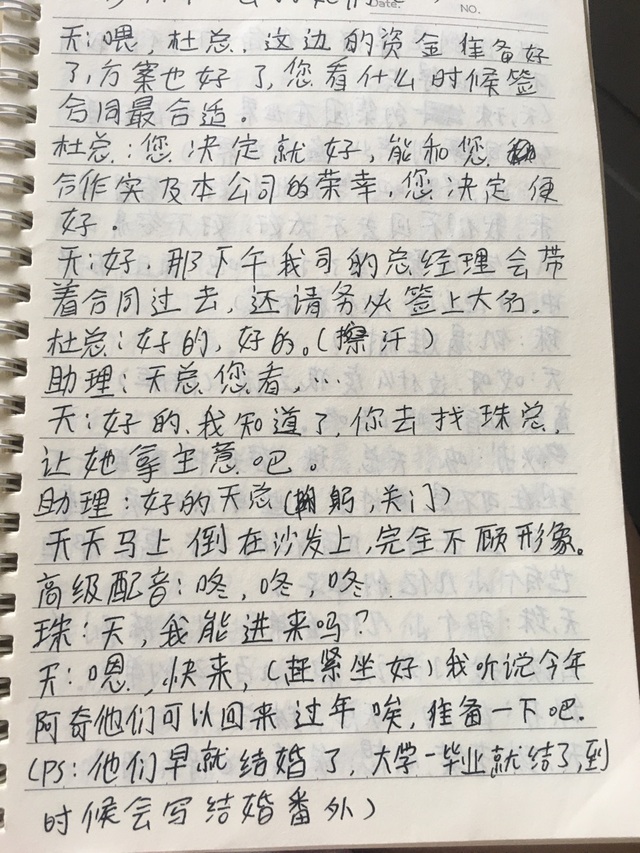 Date.
NO.
天:喂,杜总,这边的资金准备好
了,方案也好了,您看什么时候签
合同最合适。
杜总:您决定就好,能和您
合作实及本公司的荣幸,您决定便
好。
天:好,那下午我司的总经理会带
着合同过去,还请务必签上大名.
杜总:好的,好的。(擦汗)
助理:天总您看,…
天:好的,我知道了,你去找珠总,
让她拿主意吧。
助理:好的天总(鞠躬,关门)
天天马上倒在沙发上,完全不顾形象。
高级配音:咚,咚,咚
珠:天,我能进来吗?
天:嗯,快来,(赶紧坐好)我听说今年
阿奇他们可以回来过年唉,准备一下吧.
(PS:他们早就结婚了,大学一毕业就结了,到
时候会写结婚番外)